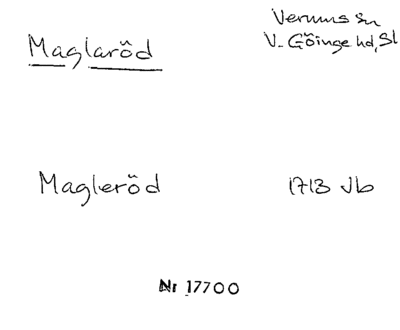 Maglaröd
Verums sn
V. Göinge hd, Sl
Magleröd
1713 Jb
Nr 17700